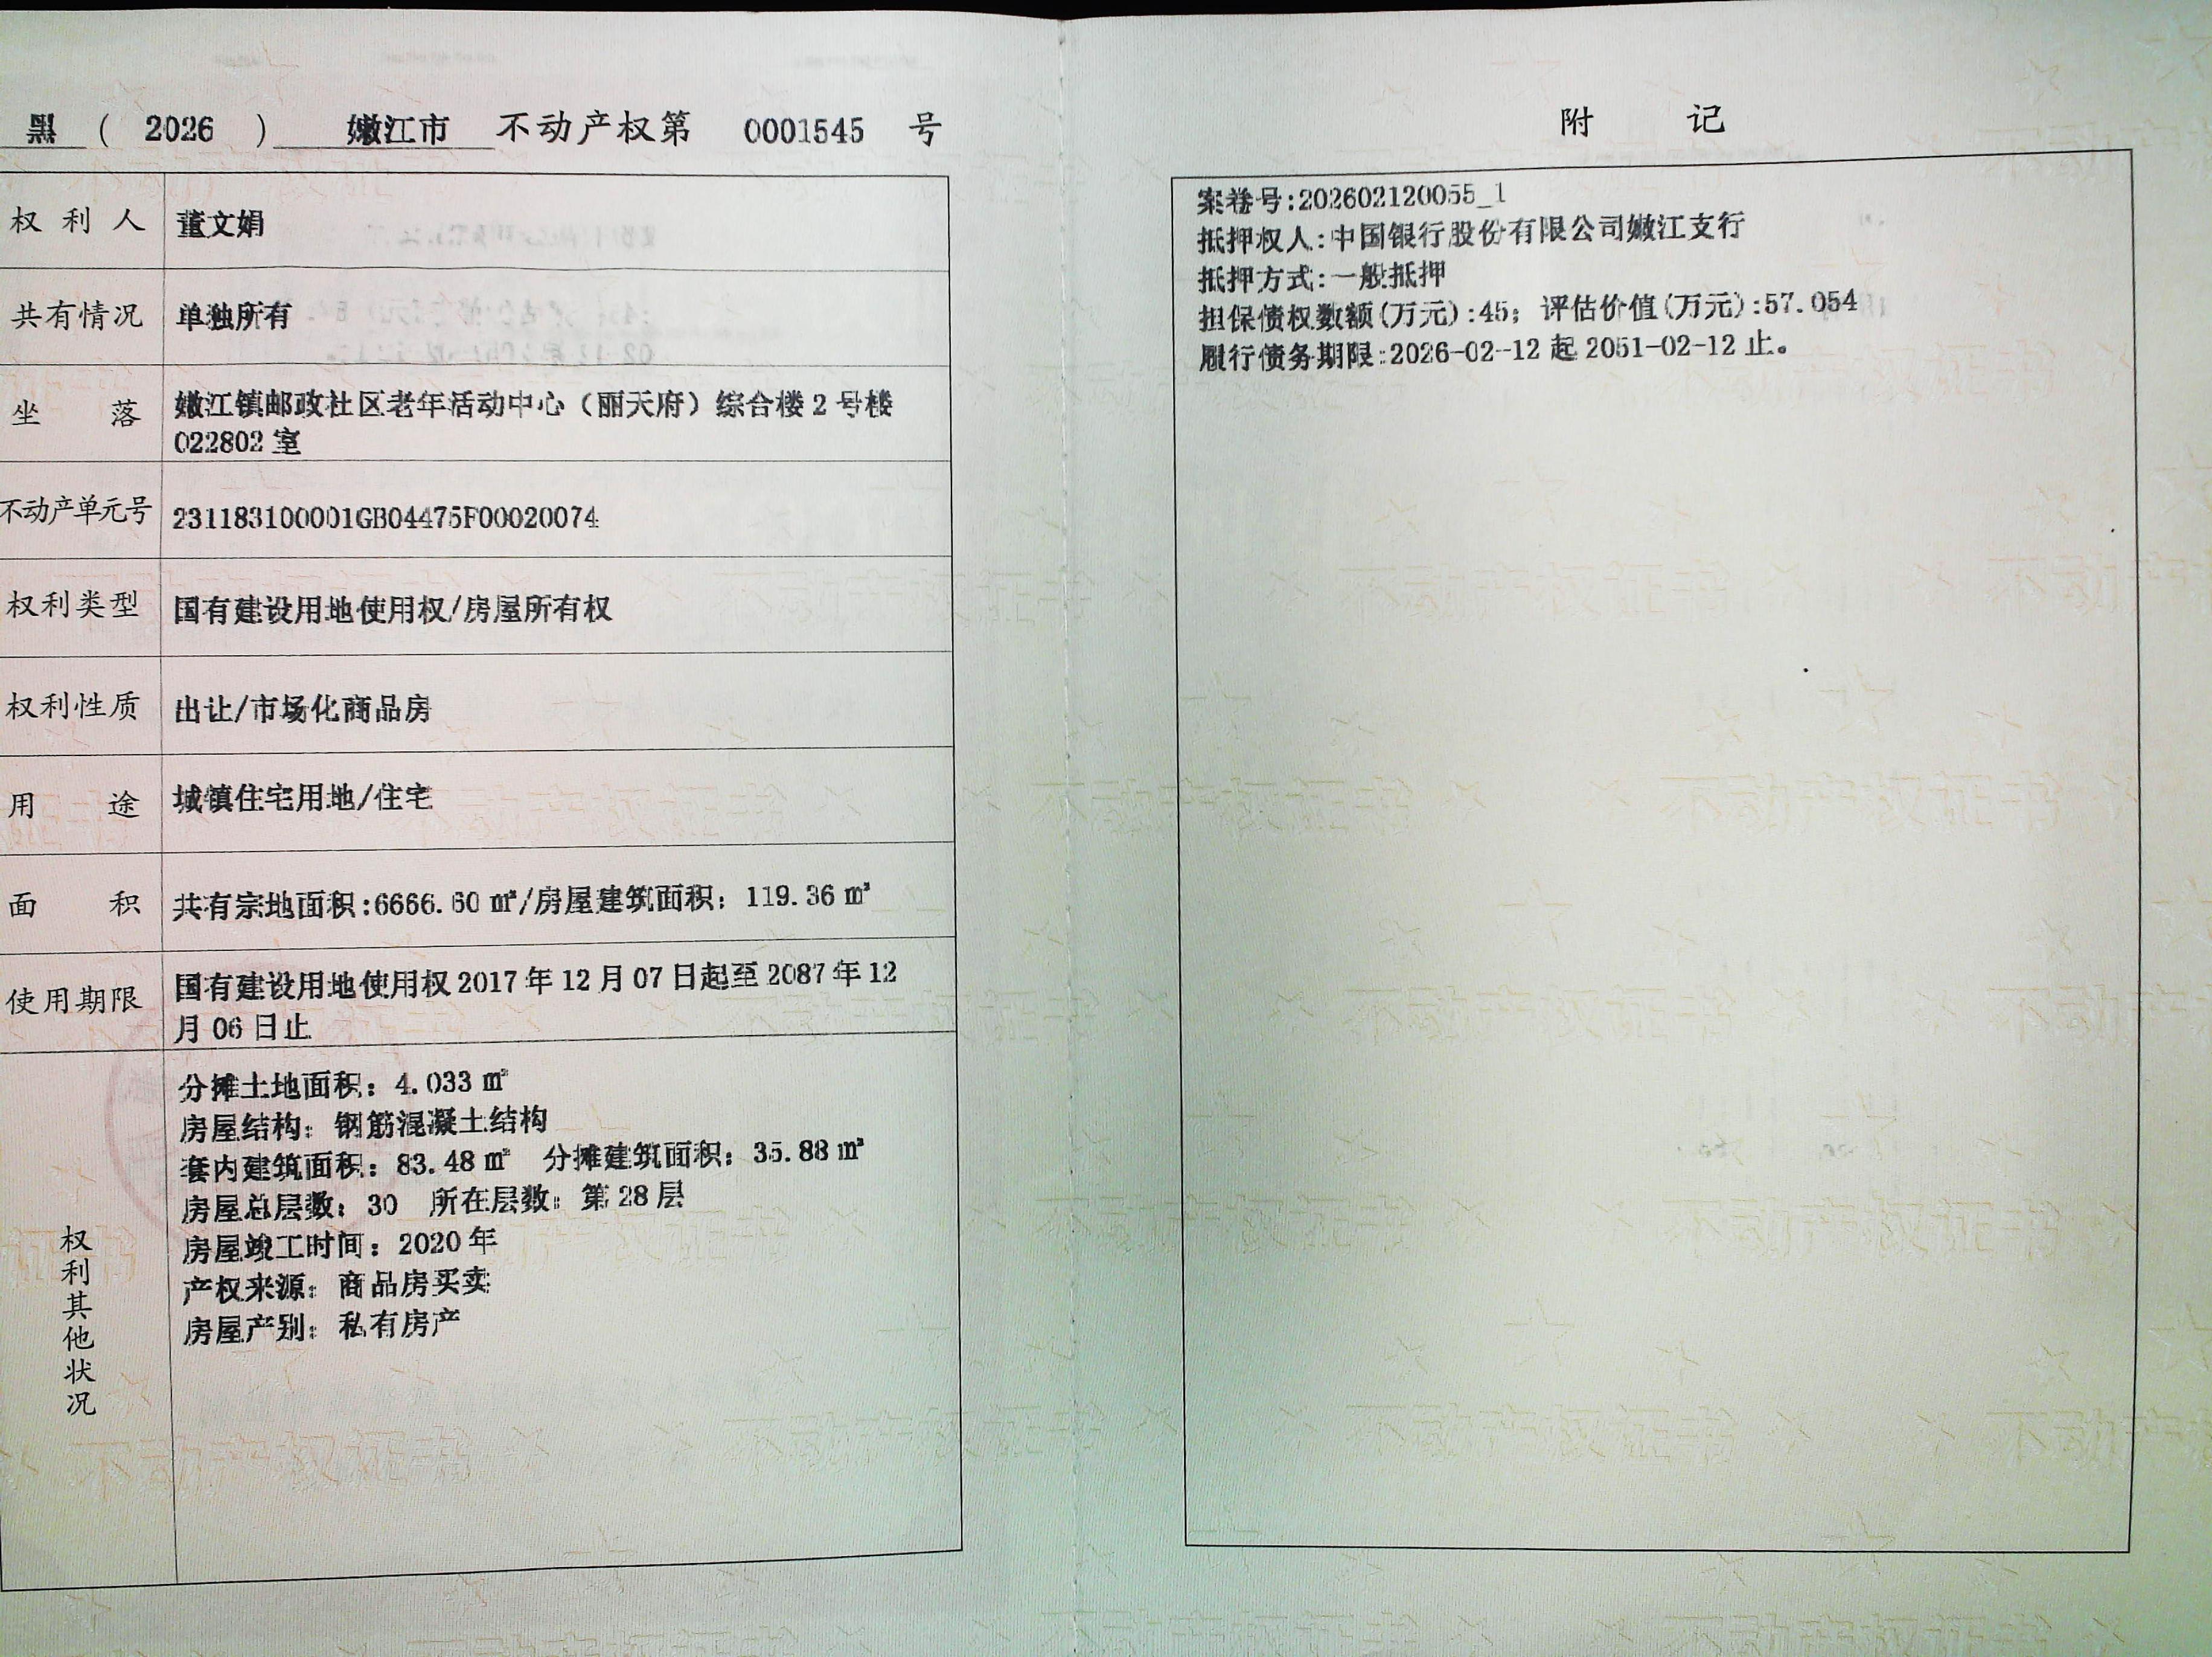 黑 （ 2026 ） 嫩江市 不动产权第 0001545 号
权利人 董文娟
共有情况 单独所有
坐落 嫩江镇邮政社区老年活动中心（丽天府）综合楼2号楼
022802室
不动产单元号 231183100001GB04475F00020074
权利类型 国有建设用地使用权/房屋所有权
权利性质 出让/市场化商品房
用途 城镇住宅用地/住宅
面积 共有宗地面积:6666.60㎡/房屋建筑面积：119.36㎡
使用期限 国有建设用地使用权2017年12月07日起至2087年12
月06日止
权利其他状况
分摊土地面积：4.033㎡
房屋结构：钢筋混凝土结构
套内建筑面积：83.48㎡ 分摊建筑面积：35.88㎡
房屋总层数：30 所在层数：第28层
房屋竣工时间：2020年
产权来源：商品房买卖
房屋产别：私有房产
附记
案卷号:202602120055_1
抵押权人:中国银行股份有限公司嫩江支行
抵押方式:一般抵押
担保债权数额(万元):45；评估价值(万元):57.054
履行债务期限:2026-02-12起2051-02-12止。
不动产权证书